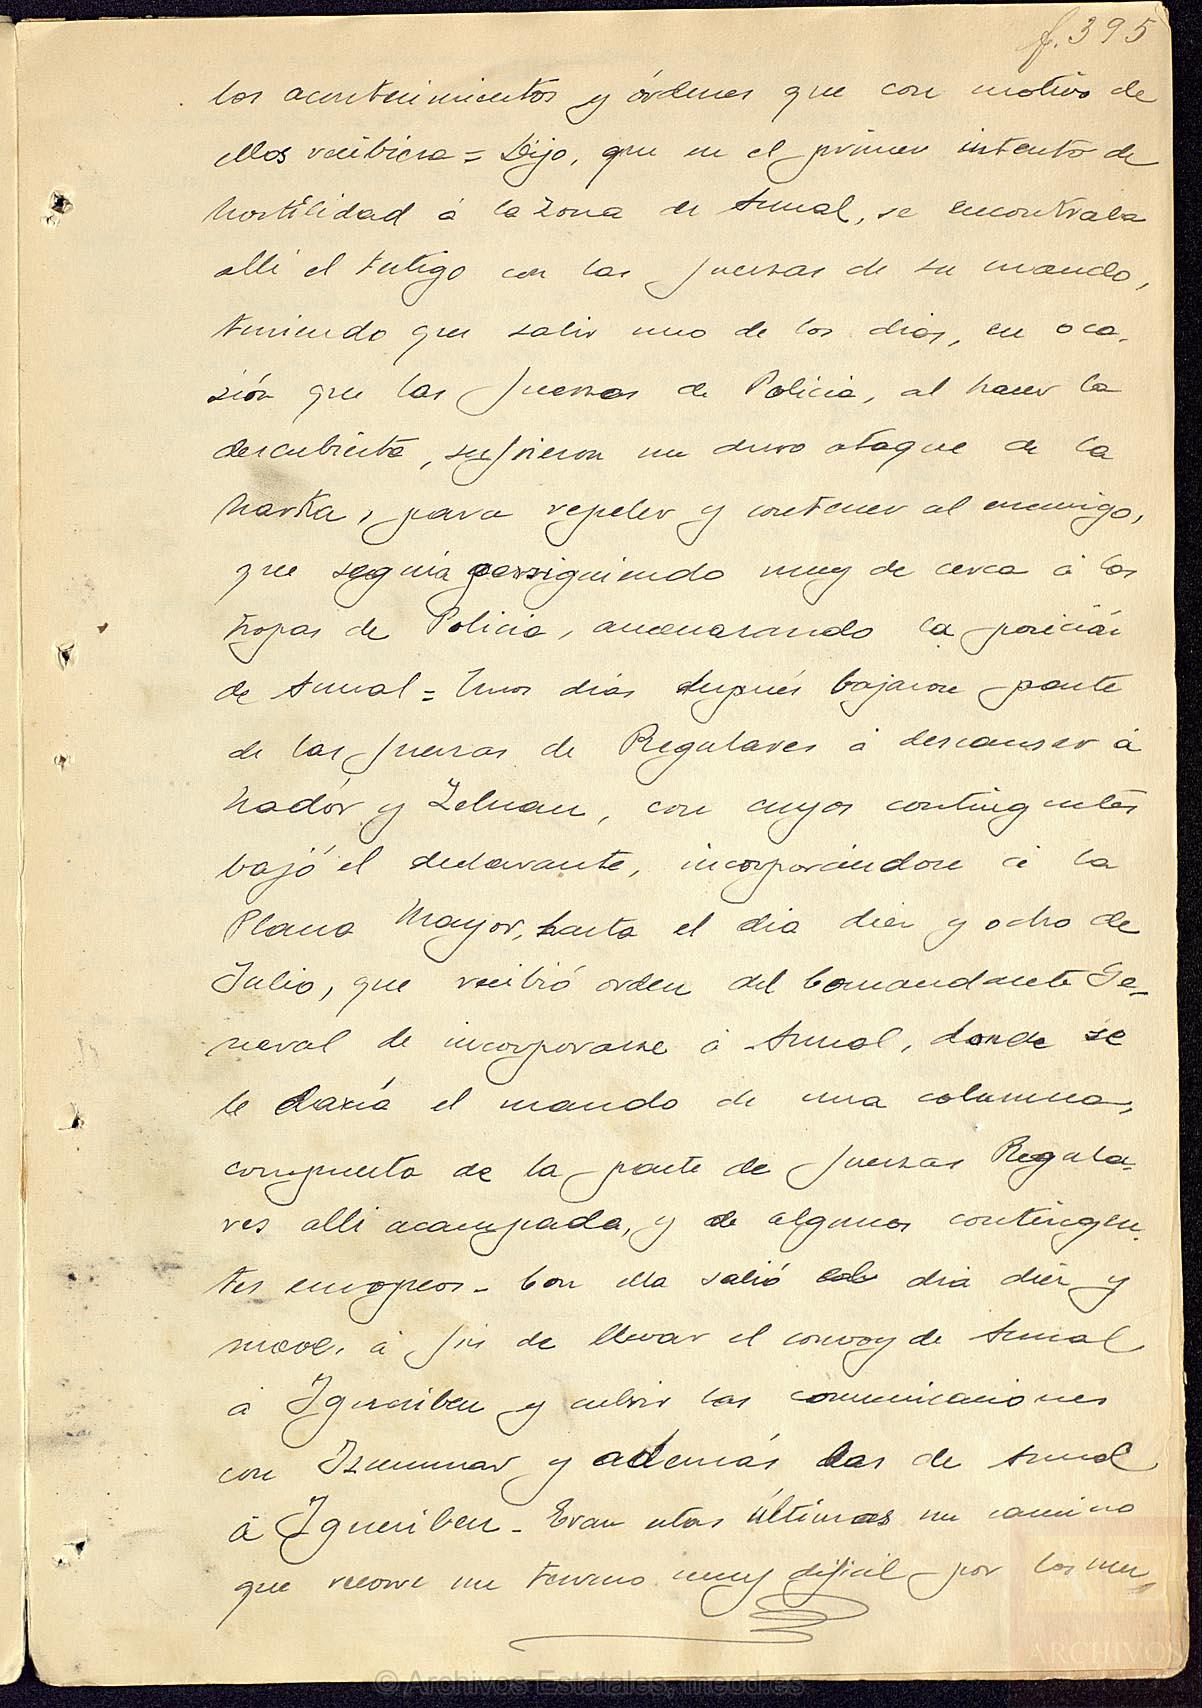 f. 395
los acontecimientos y órdenes que con motivo de
ellos recibiera = Dijo, que en el primer intento de
hostilidad á la zona de Annual, se encontraba
alli el testigo con las fuerzas de su mando,
teniendo que salir uno de los dias, en oca-
sión que las fuerzas de Policia, al hacer la
descubierta, sufrieron un duro ataque de la
harka, para repeler y contener al enemigo,
que seguia persiguiendo muy de cerca á las
tropas de Policia, amenazando la posición
de Annual = Unos dias después bajaron parte
de las fuerzas de Regulares á descansar á
Nadór y Zeluan, con cuyos contingentes
bajó el declarante, incorporándose á la
Plana Mayor, hasta el dia diez y ocho de
Julio, que recibió orden del Comandante Ge-
neral de incorporarse á Annual, donde se
le daría el mando de una columna,
compuesta de la parte de fuerzas Regula-
res alli acampada, y de algunos contingen-
tes europeos - Con ella salió el dia diez y
nueve, á fin de llevar el convoy de Annual
á Igueriben y cubrir las comunicaciones
con Izummar y además las de Annual
á Igueriben - Eran estas últimas un camino
que recorre un terreno muy dificil por los mu-
ARCHIVOS
© Archivos Estatales, mecd.es